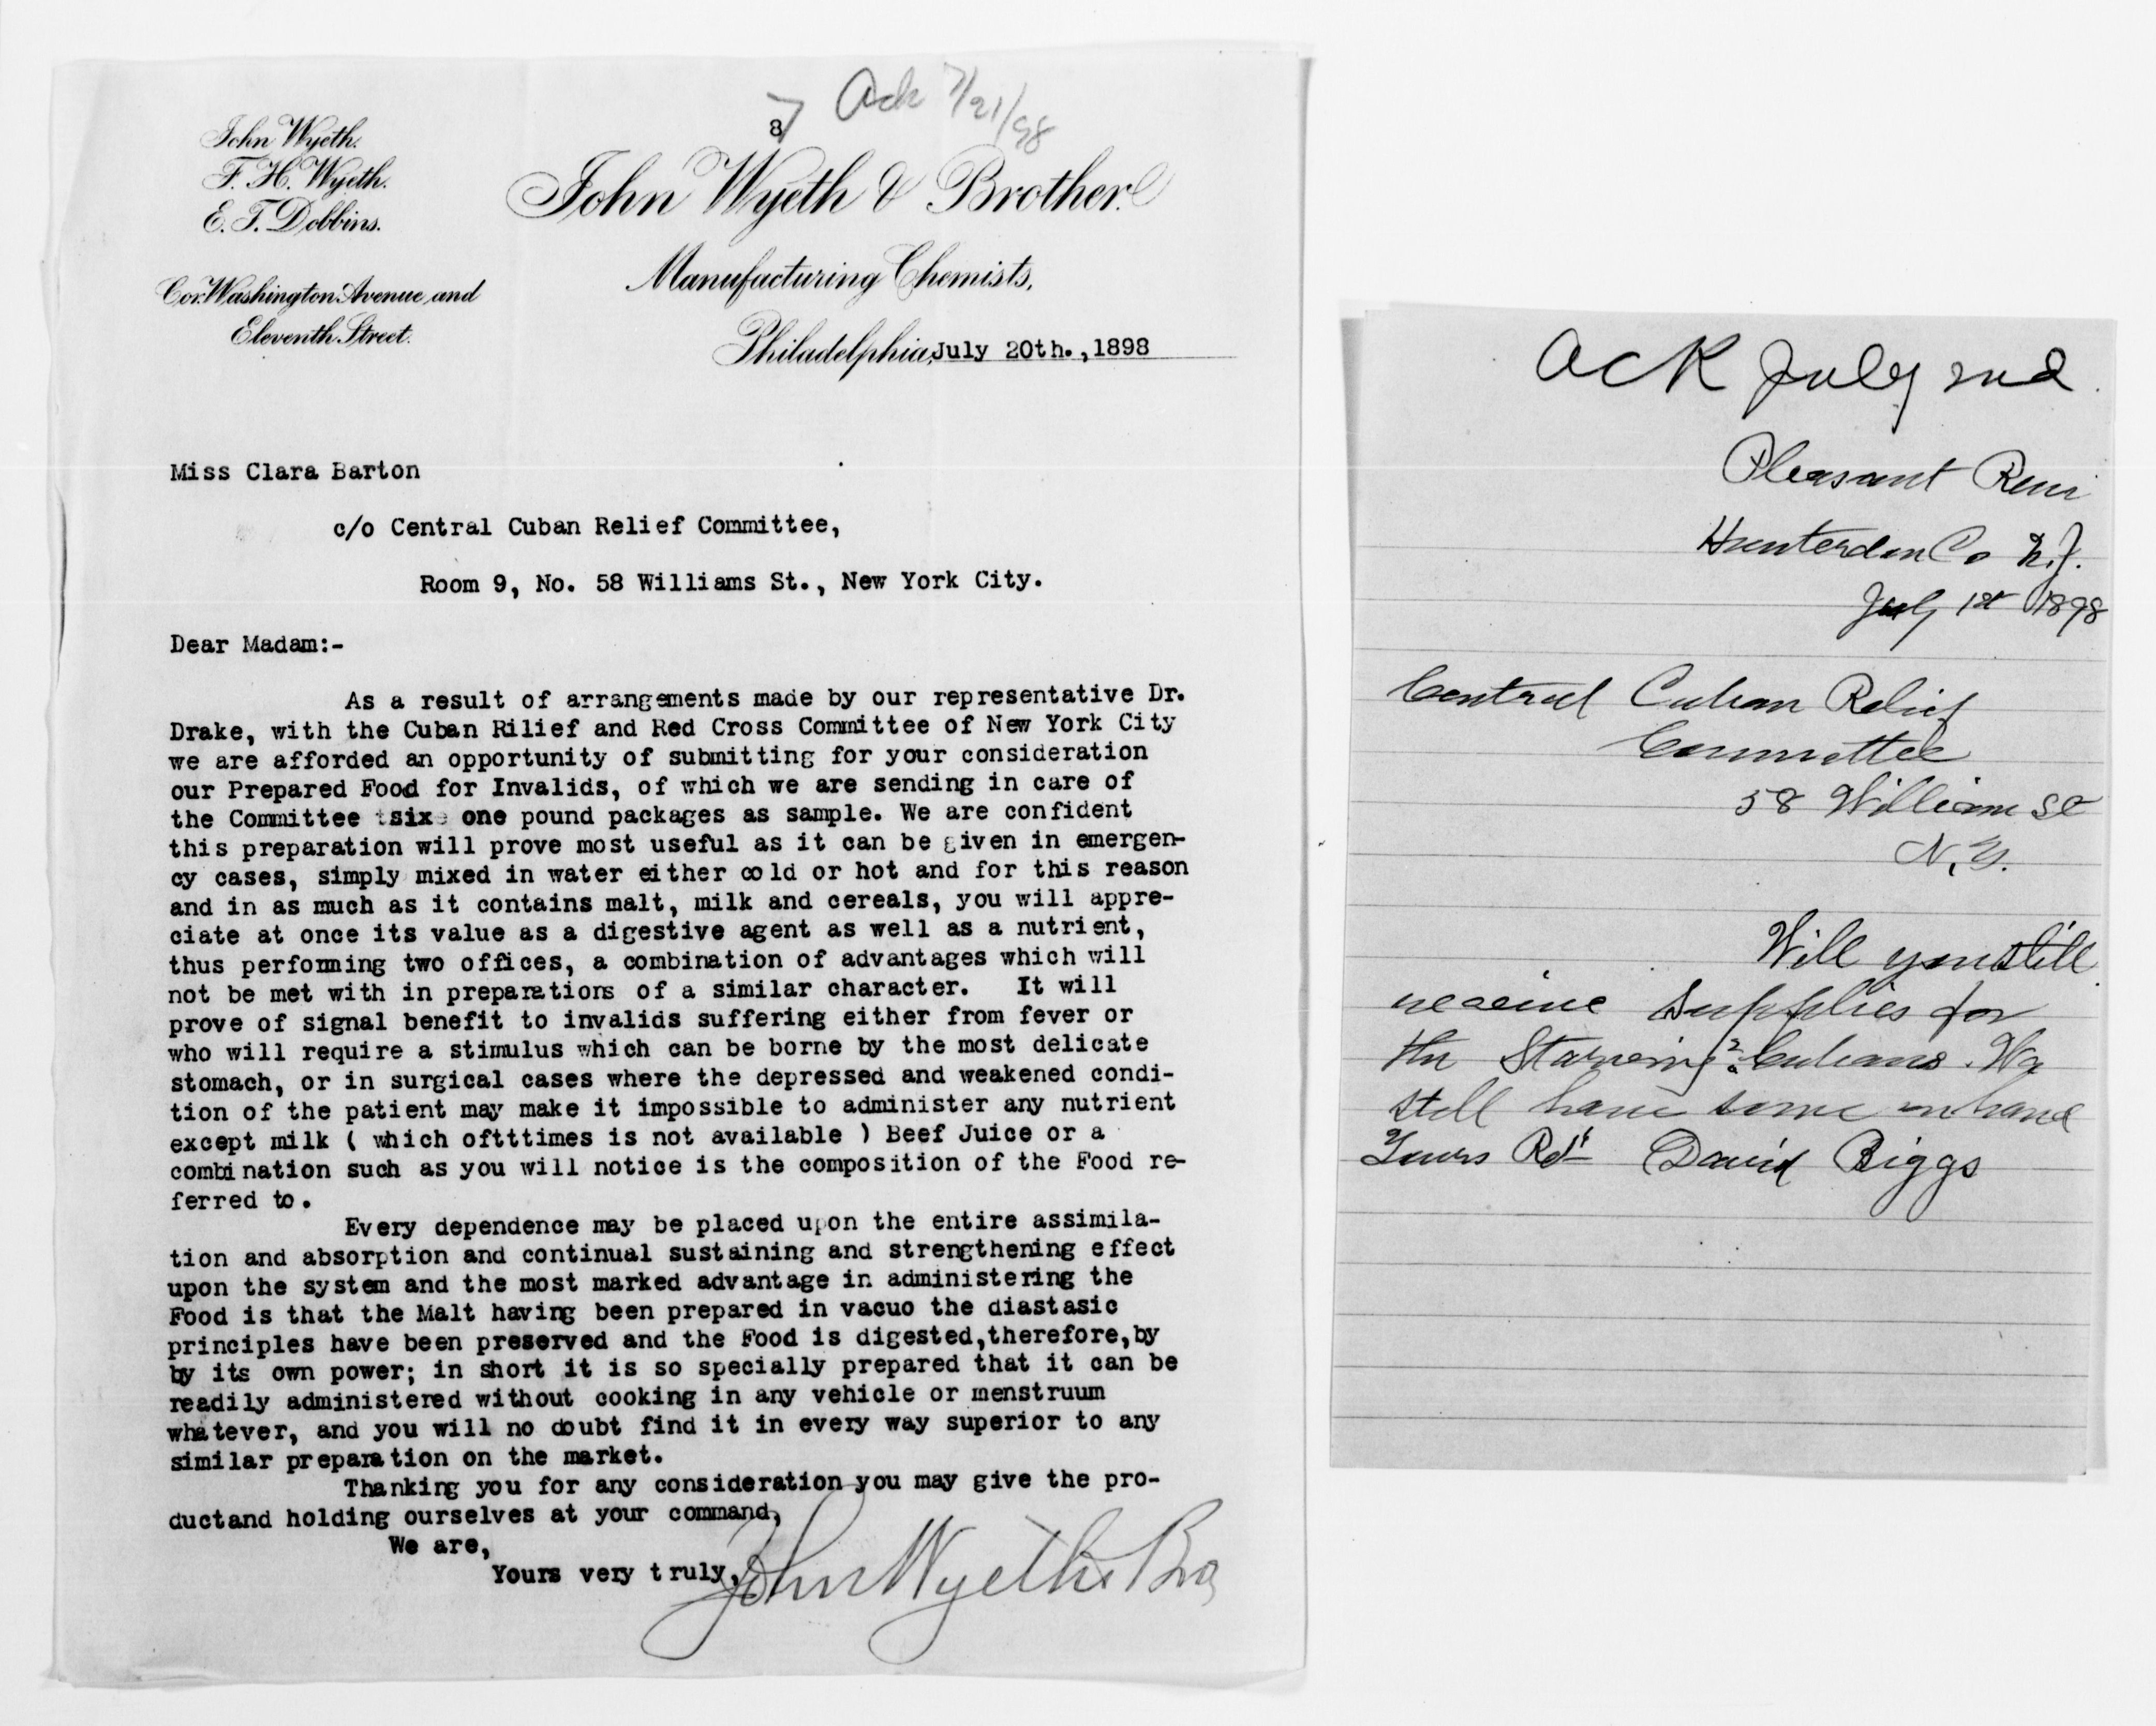 8/ Ack 7/21/98
John Wyeth.
F. H. Wyeth.
E. T. Dobbins.
Cor. Washington Avenue and
Eleventh Street.
John Wyeth & Brother.
Manufacturing Chemists,
Philadelphia, July 20th., 1898
Miss Clara Barton
c/o Central Cuban Relief Committee,
Room 9, No. 58 Williams St., New York City.
Dear Madam:-
As a result of arrangements made by our representative Dr.
Drake, with the Cuban Rilief and Red Cross Committee of New York City
we are afforded an opportunity of submitting for your consideration
our Prepared Food for Invalids, of which we are sending in care of
the Committee six one pound packages as sample. We are confident
this preparation will prove most useful as it can be given in emergen-
cy cases, simply mixed in water either cold or hot and for this reason
and in as much as it contains malt, milk and cereals, you will appre-
ciate at once its value as a digestive agent as well as a nutrient,
thus performing two offices, a combination of advantages which will
not be met with in preparations of a similar character. It will
prove of signal benefit to invalids suffering either from fever or
who will require a stimulus which can be borne by the most delicate
stomach, or in surgical cases where the depressed and weakened condi-
tion of the patient may make it impossible to administer any nutrient
except milk ( which oftttimes is not available ) Beef Juice or a
combination such as you will notice is the composition of the Food re-
ferred to.
Every dependence may be placed upon the entire assimila-
tion and absorption and continual sustaining and strengthening effect
upon the system and the most marked advantage in administering the
Food is that the Malt having been prepared in vacuo the diastasic
principles have been preserved and the Food is digested,therefore,by
by its own power; in short it is so specially prepared that it can be
readily administered without cooking in any vehicle or menstruum
whatever, and you will no doubt find it in every way superior to any
similar preparation on the market.
Thanking you for any consideration you may give the pro-
ductand holding ourselves at your command,
We are,
Yours very truly,
John Wyeth & Bro
Ack July 2nd.
Pleasant Run
Hunterdon Co N.J.
July 1st 1898
Central Cuban Relief
Committee
58 William St
N.Y.
Will you still
receive supplies for
the Starving Cubans. We
still have some on hand
Yours Rdt David Biggs